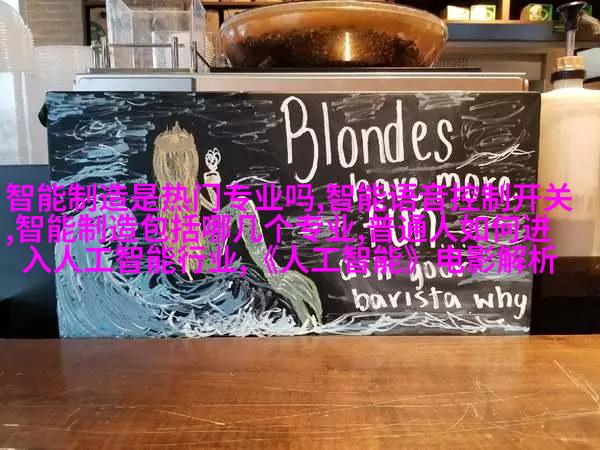 Blondes
have more
FUN
智能制造是热门专业吗,智能语音控制开关
,智能制造包括哪几个专业,普通人如何进
入人工智能行业,《人工智能》电影解析
barista why